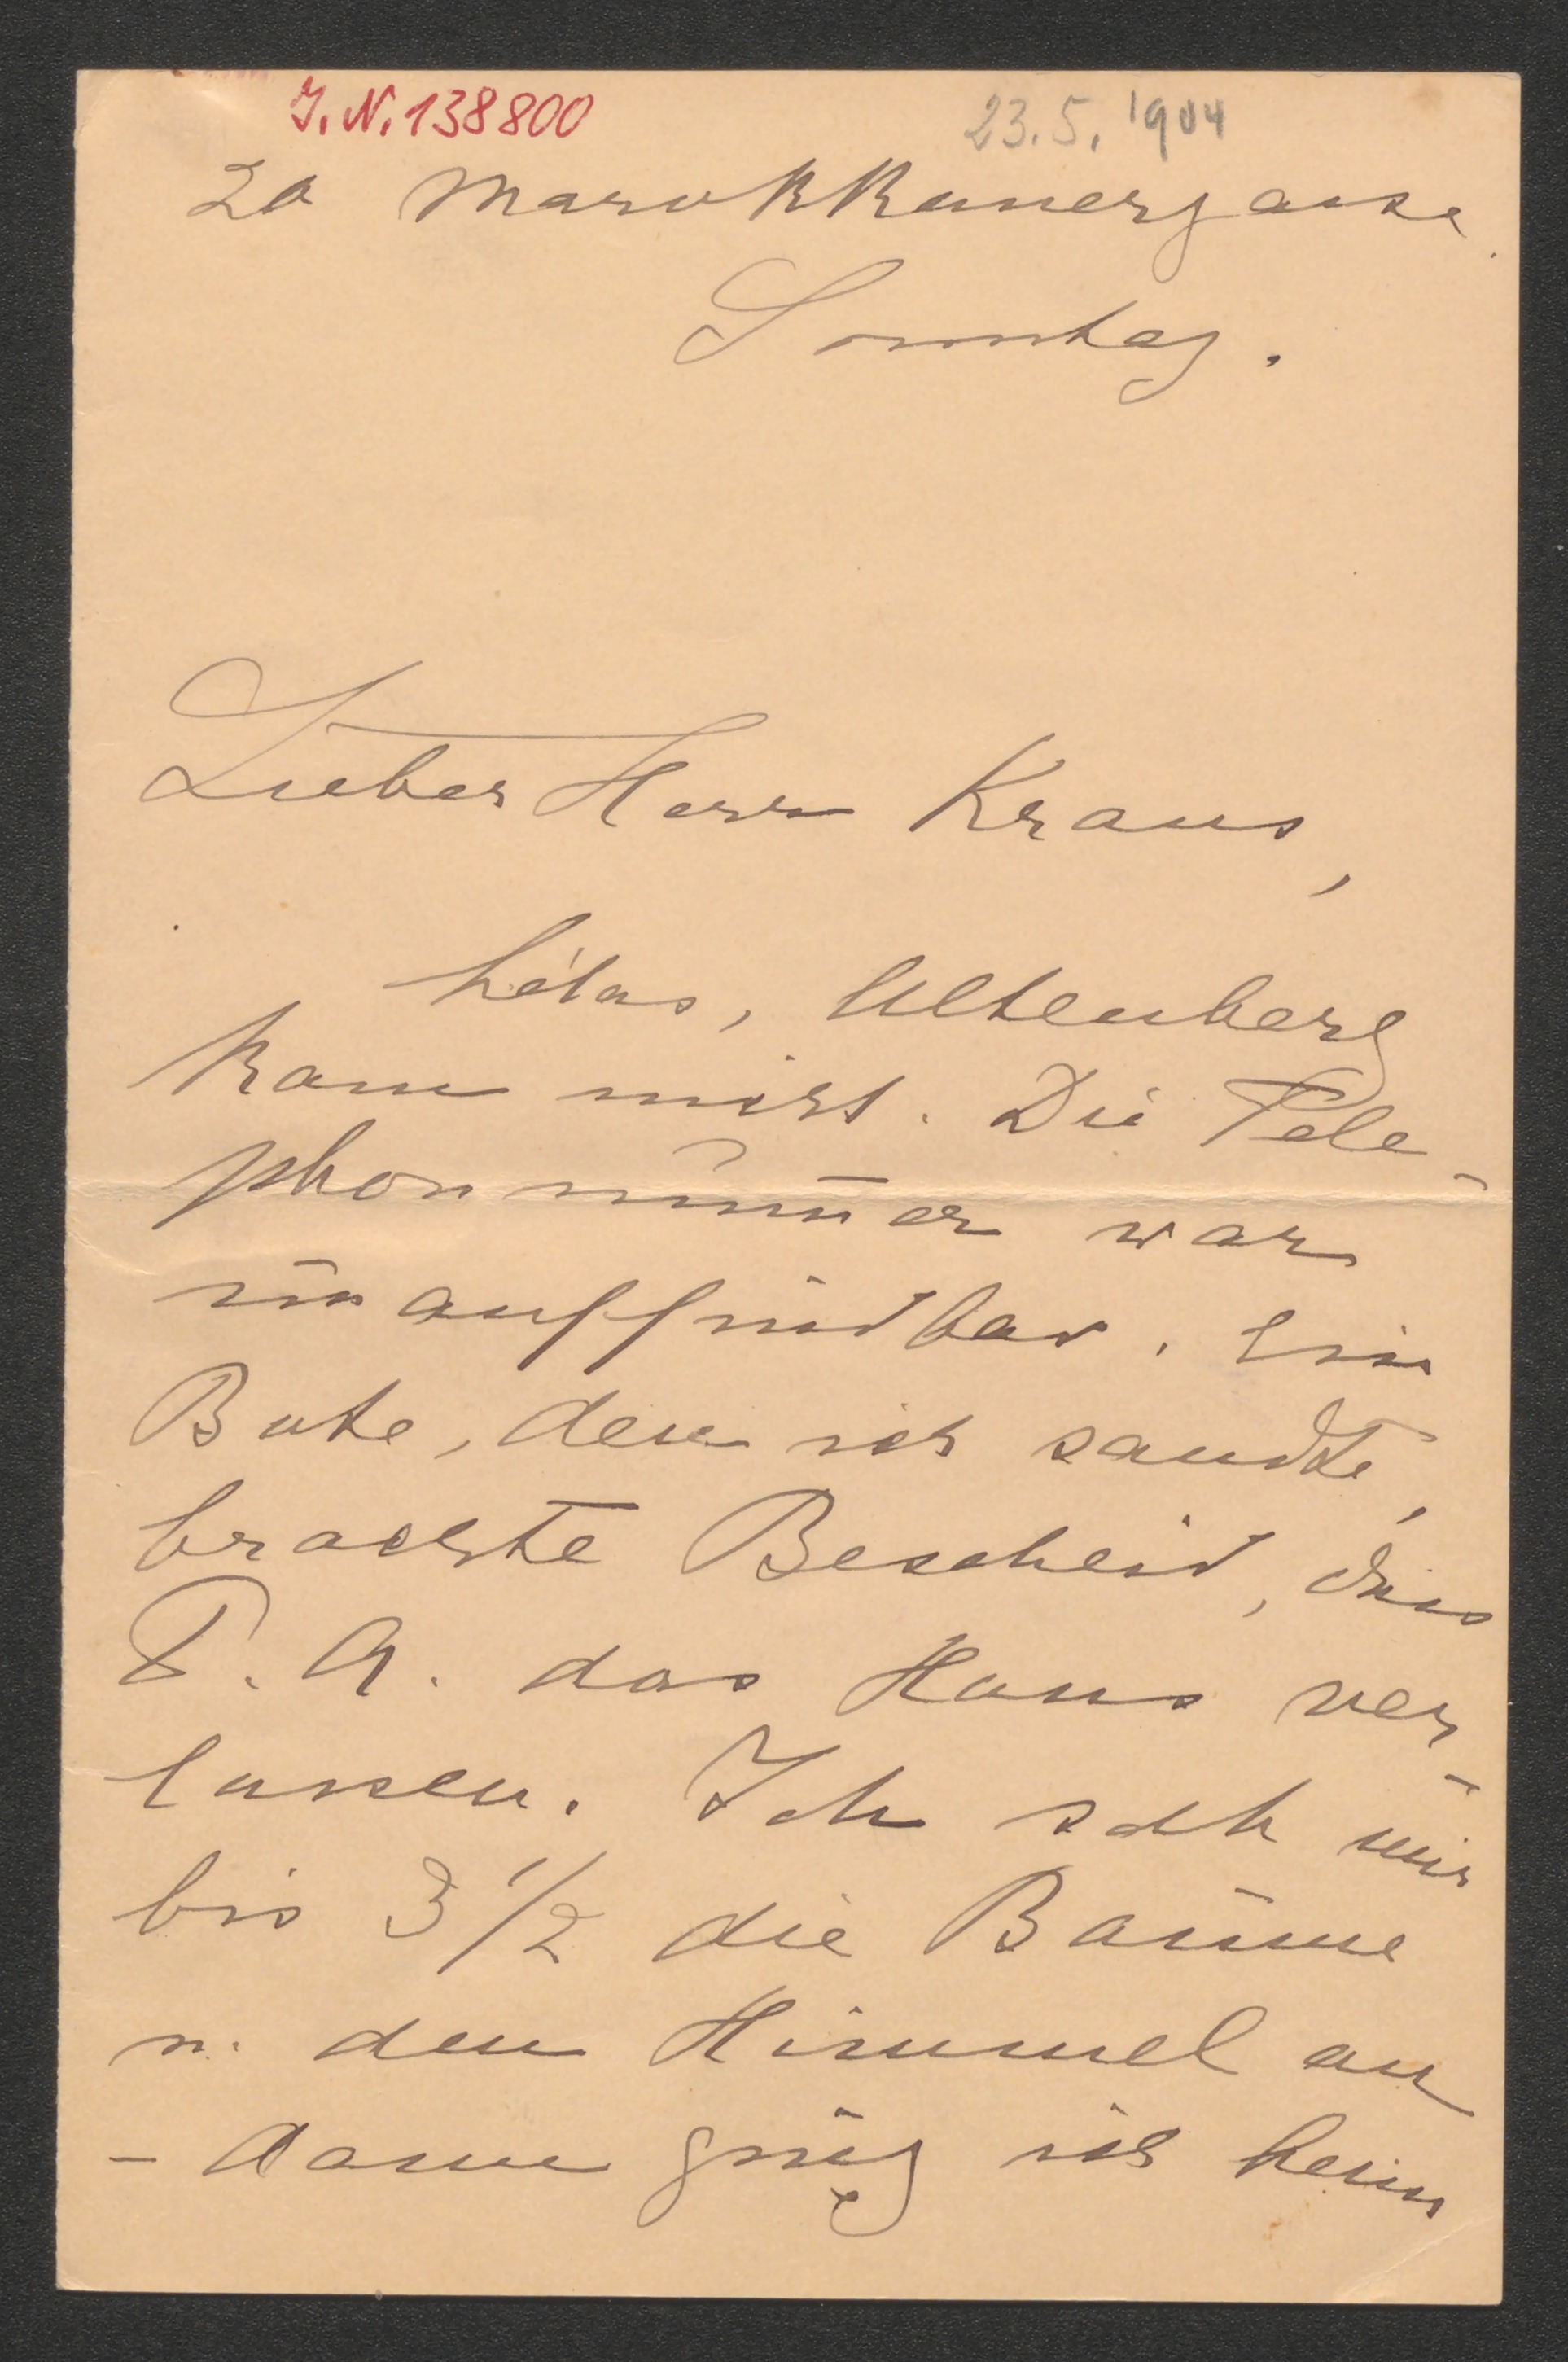 J.N. 138800
23.5.1904
20 Marokkanergasse.
Sonntag.
Lieber Herr Kraus,
hélas, Altenberg
kam nicht. Die Tele-
phonnum̅er war
unauffindbar. Ein
Bote, den ich sandte,
brachte Bescheid, dass
P. A. das Haus ver-
lassen. Ich sah mir
bis 3 1/2 die Bäume
u. den Himmel an
- dann ging ich heim